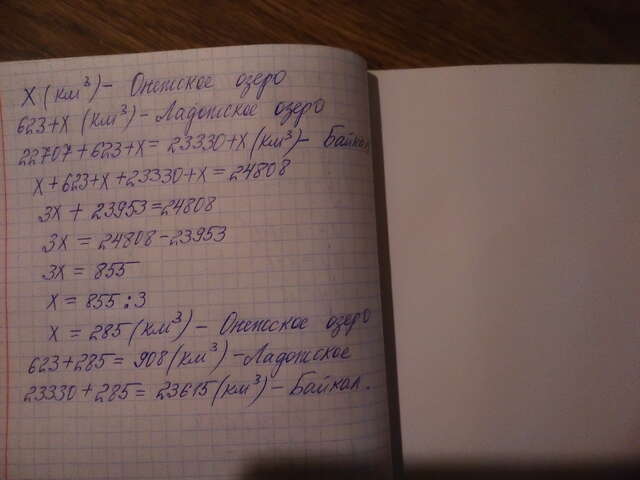 X (км³) - Онежское озеро
623+X (км³) - Ладожское озеро
22707+623+X = 23330+X (км³) - Байкал
X+623+X+23330+X = 24808
3X + 23953 = 24808
3X = 24808-23953
3X = 855
X = 855 : 3
X = 285 (км³) - Онежское озеро
623+285 = 908 (км³) - Ладожское
23330+285 = 23615 (км³) - Байкал.